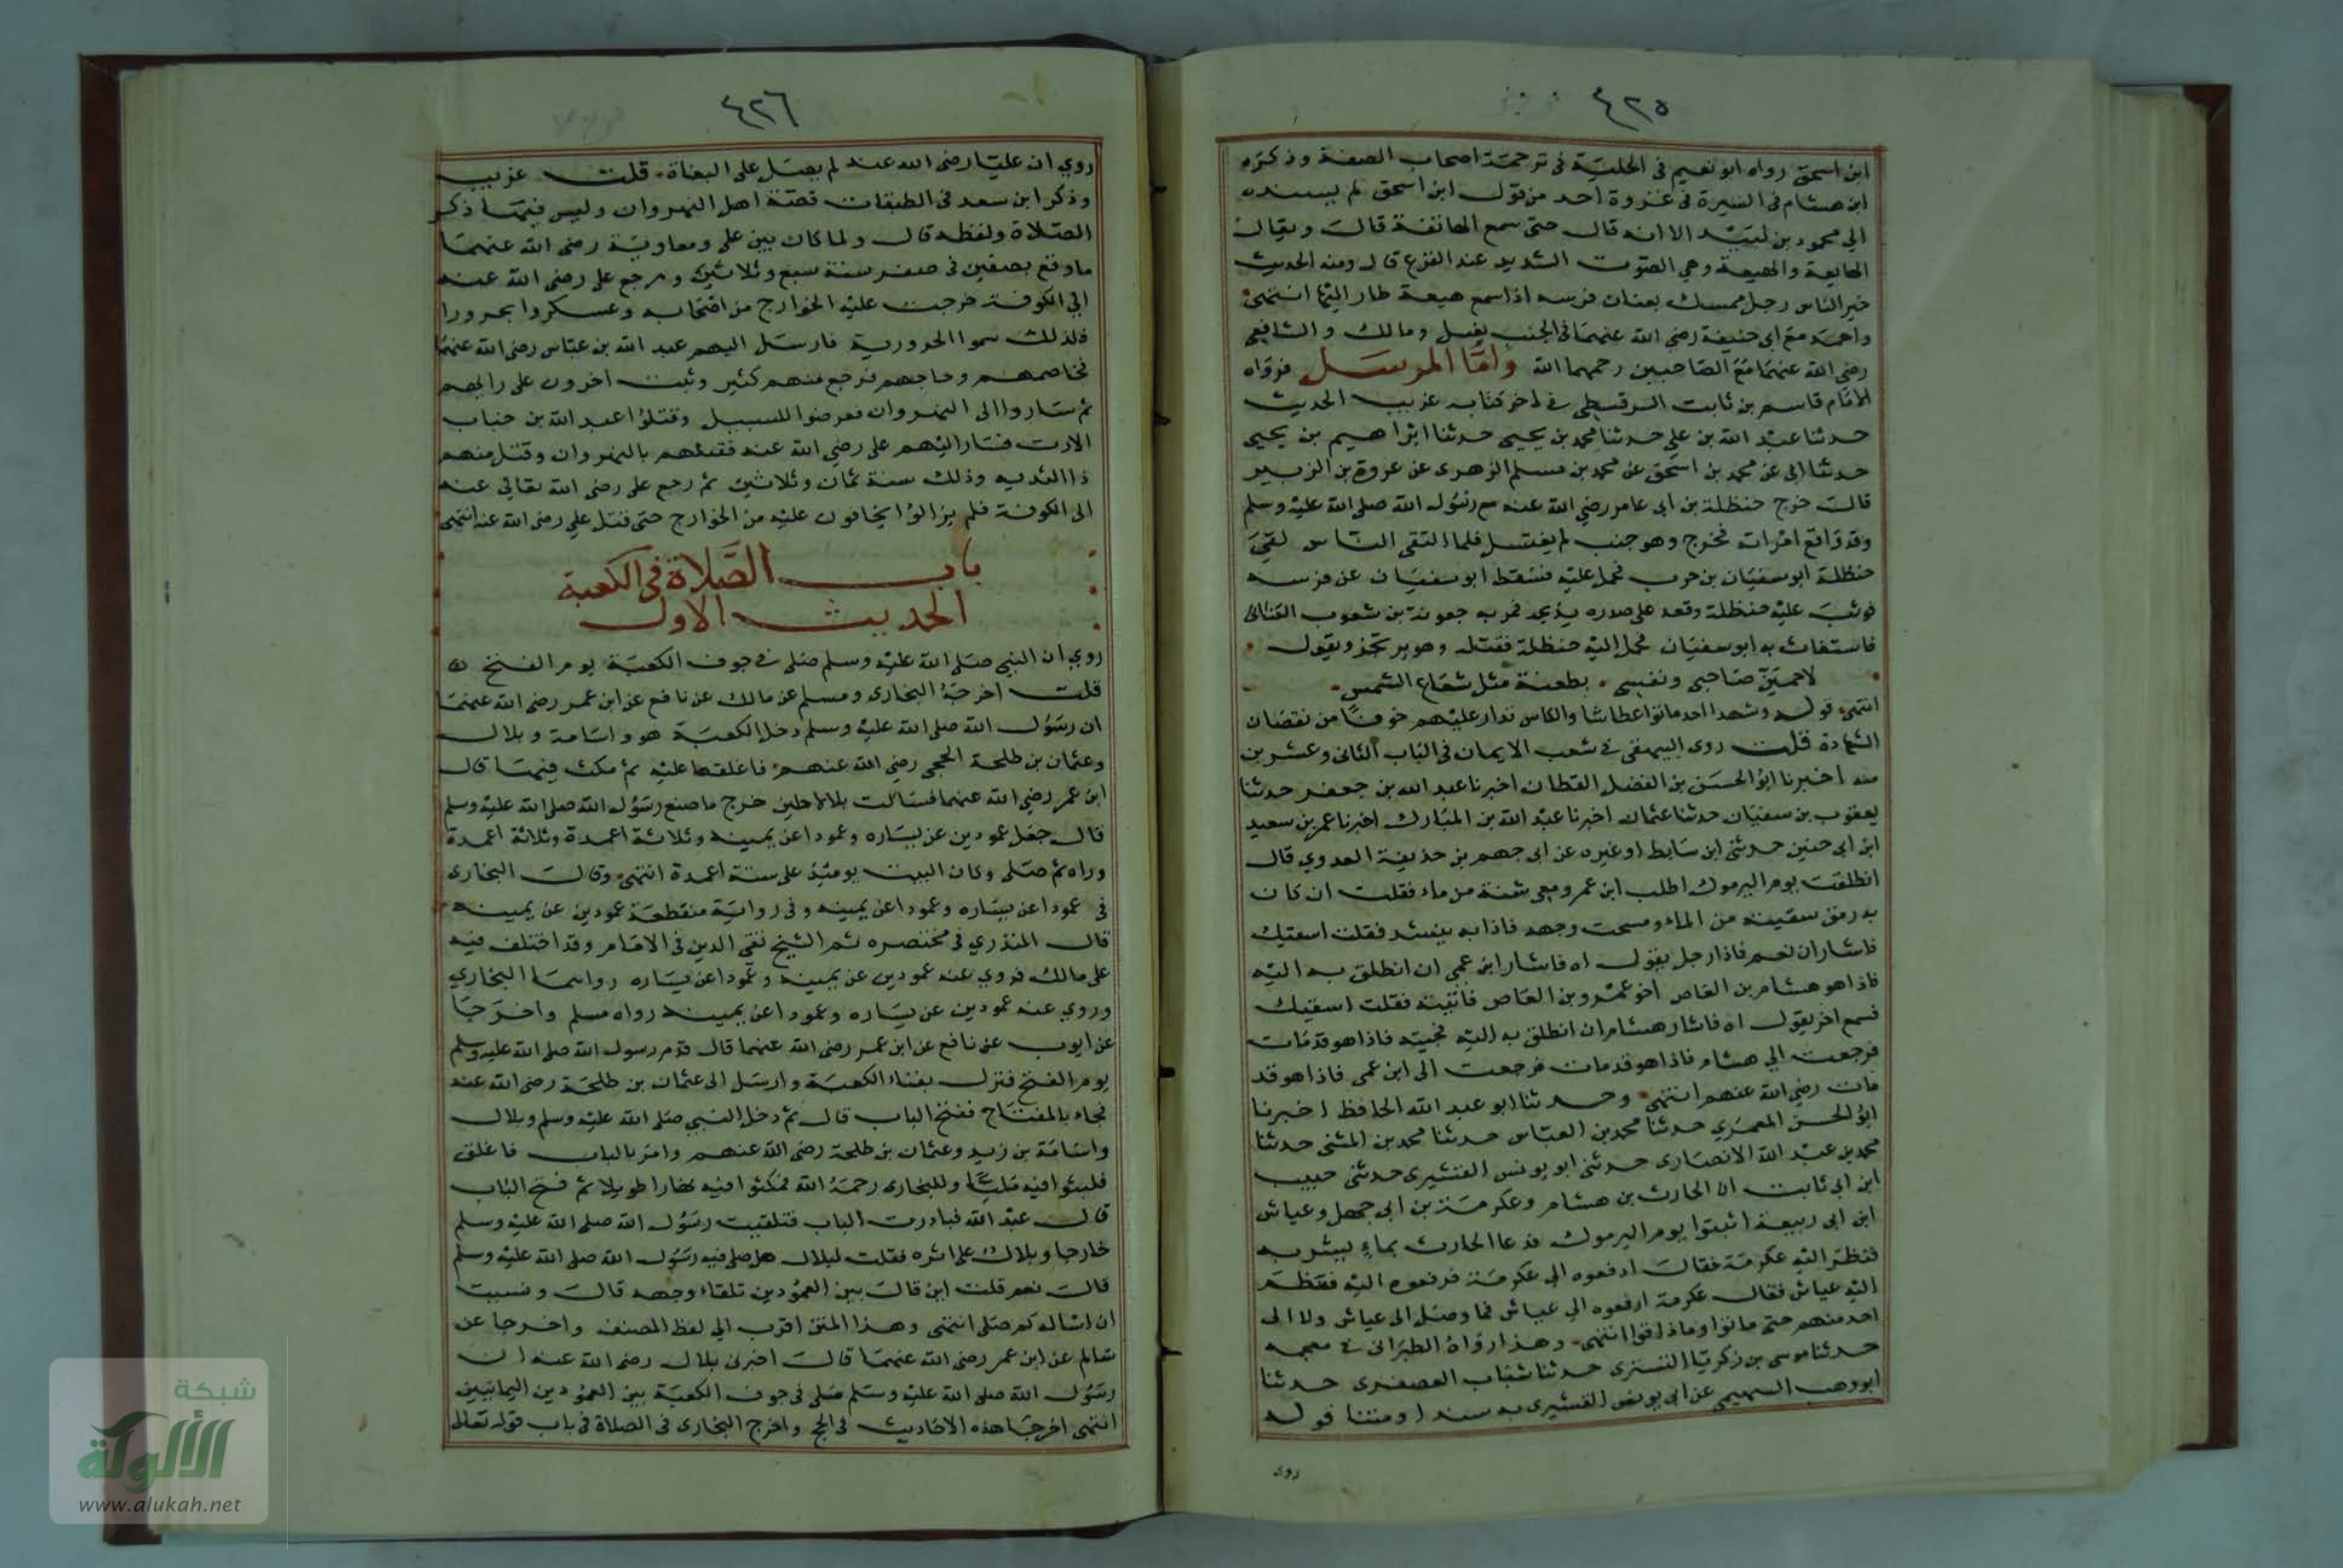 ٤٢٥
ابن اسحق رواه ابو نعيم في الحلية في ترجمة اصحاب الصفة وذكره
ابن هشام في السيرة في غزوة احد من قول ابن اسحق لم يسنده
الي محمود بن لبيد الا انه قال حتى سمع الهاتفة قال ويقال
الهايعة والهيعة وهي الصوت الشديد عند الفزع قال ومنه الحديث
خير الناس رجل ممسك بعنان فرسه اذا سمع هيعة طار اليها انتهى
واحمد مع ابي حنيفة رضي الله عنهما في الجنب يغسل ومالك والشافعي
رضي الله عنهما مع الصاحبين رحمهما الله واما المرسل فرواه
الامام قاسم بن ثابت السرقسطي في اخر كتابه غريب الحديث
حدثنا عبد الله بن علي حدثنا محمد بن يحيى حدثنا ابراهيم بن يحيى
حدثنا ابي عن محمد بن اسحق عن محمد بن مسلم الزهرى عن عروة بن الزبير
قال خرج حنظلة بن ابي عامر رضي الله عنه مع رسول الله صلى الله عليه وسلم
وقد واقع امراته فخرج وهو جنب لم يغتسل فلما التقى الناس لقي
حنظلة ابو سفيان بن حرب فحمل عليه فسقط ابو سفيان عن فرسه
فوثب عليه حنظلة وقعد على صدره يذبحه فمر به جعونة بن شعوب الكناني
فاستغاث به ابو سفيان فحمل اليه حنظلة فقتله وهو يرتجز ويقول
لاحمين صاحبي ونفسي بطعنة مثل شعاع الشمس
انتهى قوله وشهدا احد ماتوا عطاشا والكاس تدار عليهم خوفا من نقصان
الشهادة قلت روى البيهقي في شعب الايمان في الباب الثاني وعشرين
منه اخبرنا ابو الحسن بن الفضل القطان اخبرنا عبد الله بن جعفر حدثنا
يعقوب بن سفيان حدثنا عثمان اخبرنا عبد الله بن المبارك اخبرنا عمر بن سعيد
ابن ابي حسين حدثني ابن سابط او غيره عن ابي جهم بن حذيفة العدوي قال
انطلقت يوم اليرموك اطلب ابن عمي ومعي شنة من ماء فقلت ان كان
به رمق سقيته من الماء ومسحت وجهه فاذا به ينشد فقلت اسقيك
فاشار ان نعم فاذا رجل يقول اه فاشار ابن عمي ان انطلق به اليه
فاذا هو هشام بن العاص اخو عمرو بن العاص فاتيته فقلت اسقيك
فسمع اخر يقول اه فاشار هشام ان انطلق به اليه فجيته فاذا هو قد مات
فرجعت الي هشام فاذا هو قد مات فرجعت الى ابن عمي فاذا هو قد
مات رضي الله عنهم انتهى وحدثنا ابو عبد الله الحافظ اخبرنا
ابو الحسن المعمري حدثنا محمد بن العباس حدثنا محمد بن المثنى حدثنا
محمد بن عبد الله الانصارى حدثني ابو يونس القشيرى حدثني حبيب
ابن ابي ثابت ان الحارث بن هشام وعكرمة بن ابي جهل وعياش
ابن ابي ربيعة اثبتوا يوم اليرموك فدعا الحارث بماء ليشربه
فنظر اليه عكرمة فقال ادفعوه الي عكرمة فرفعوه اليه فنظر
اليه عياش فقال عكرمة ارفعوه الي عياش فما وصل الى عياش ولا الى
احد منهم حتى ماتوا وما ذاقوا انتهى وهذا رواه الطبراني في معجمه
حدثنا موسى بن زكريا التسترى حدثنا شباب العصفرى حدثنا
ابو وهب السهمي عن ابي يونس القشيرى به سندا ومتنا قوله
روى
٤٢٦
روي ان عليا رضى الله عنه لم يصل على البغاة قلت غريب
وذكر ابن سعد في الطبقات قصة اهل النهروان وليس فيها ذكر
الصلاة ولفظه قال ولما كان بين علي ومعاوية رضى الله عنهما
ما وقع بصفين في صفر سنة سبع وثلاثين ورجع علي رضى الله عنه
الي الكوفة خرجت عليه الخوارج من اصحابه وعسكروا بحرورا
فلذلك سموا الحرورية فارسل اليهم عبد الله بن عباس رضى الله عنهما
فخاصمهم وحاجهم فرجع منهم كثير وثبت اخرون على رايهم
ثم ساروا الى النهروان فعرضوا للسبيل وقتلوا عبد الله بن خباب
الارت فسار اليهم على رضي الله عنه فقتلهم بالنهروان وقتل منهم
ذا الثديه وذلك سنة ثمان وثلاثين ثم رجع على رضى الله تعالى عنه
الى الكوفة فلم يزالوا يخافون عليه من الخوارج حتى قتل علي رضى الله عنه انتهى
باب الصلاة في الكعبة
الحديث الاول
روي ان النبي صلى الله عليه وسلم صلى في جوف الكعبة يوم الفتح
قلت اخرجه البخارى ومسلم عن مالك عن نافع عن ابن عمر رضى الله عنهما
ان رسول الله صلى الله عليه وسلم دخل الكعبة هو واسامة وبلال
وعثمان بن طلحة الحجبي رضي الله عنهم فاغلقها عليه ثم مكث فيها قال
ابن عمر رضي الله عنهما فسالت بلالا حين خرج ما صنع رسول الله صلى الله عليه وسلم
قال جعل عمودين عن يساره وعمودا عن يمينه وثلاثة اعمدة وثلاثة اعمدة
وراه ثم صلى وكان البيت يومئذ على ستة اعمدة انتهى وقال البخارى
في عمودا عن يساره وعمودا عن يمينه وفي رواية منقطعة عمودين عن يمينه
قال المنذري في مختصره ثم الشيخ تقي الدين في الامام وقد اختلف فيه
على مالك فروي عنه عمودين عن يمينه وعمودا عن يساره رواهما البخاري
وروي عنه عمودين عن يساره وعمودا عن يمينه رواه مسلم واخرجا
عن ايوب عن نافع عن ابن عمر رضى الله عنهما قال قدم رسول الله صلى الله عليه وسلم
يوم الفتح فنزل بفناء الكعبة وارسل الى عثمان بن طلحة رضى الله عنه
فجاء بالمفتاح ففتح الباب قال ثم دخل النبي صلى الله عليه وسلم وبلال
واسامة بن زيد وعثمان بن طلحة رضى الله عنهم وامر بالباب فاغلق
فلبثوا فيه مليا وللبخارى رحمه الله فمكثوا فيه نهارا طويلا ثم فتح الباب
قال عبد الله فبادرت الباب فتلقيت رسول الله صلى الله عليه وسلم
خارجا وبلال على اثره فقلت لبلال هل صلى فيه رسول الله صلى الله عليه وسلم
قال نعم قلت اين قال بين العمودين تلقاء وجهه قال ونسيت
ان اساله كم صلى انتهى وهذا المتن اقرب الي لفظ المصنف واخرجا عن
سالم عن ابن عمر رضى الله عنهما قال اخبرني بلال رضى الله عنه ان
رسول الله صلى الله عليه وسلم صلى في جوف الكعبة بين العمودين اليمانيين
انتهى اخرجا هذه الاحاديث في الحج واخرج البخارى في الصلاة في باب قوله تعالى
شبكة
الألوكة
www.alukah.net